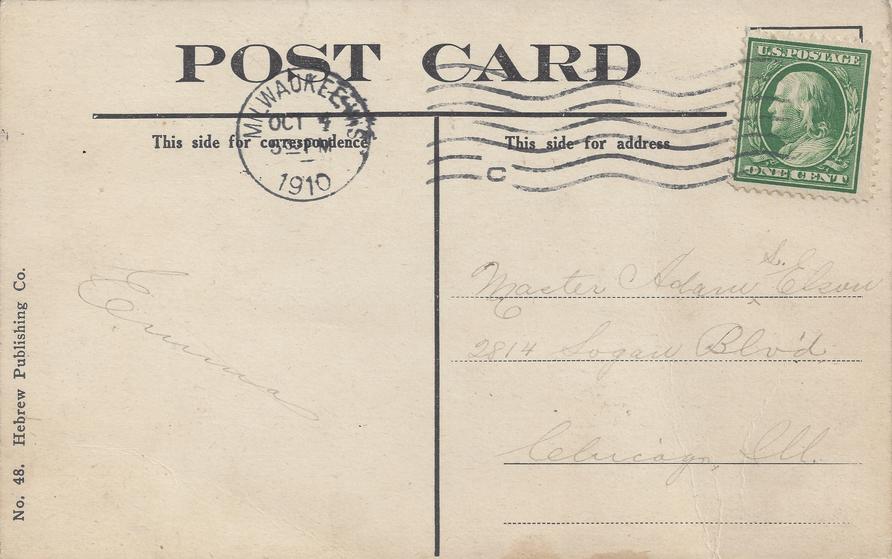 POST CARD
MILWAUKEE, WIS.
OCT 4
PM
1910
C
U.S. POSTAGE
ONE CENT
This side for correspondence
This side for address
Emma
Master Adam S. Elson
2814 Logan Blv'd
Chicago, Ill.
No. 48. Hebrew Publishing Co.